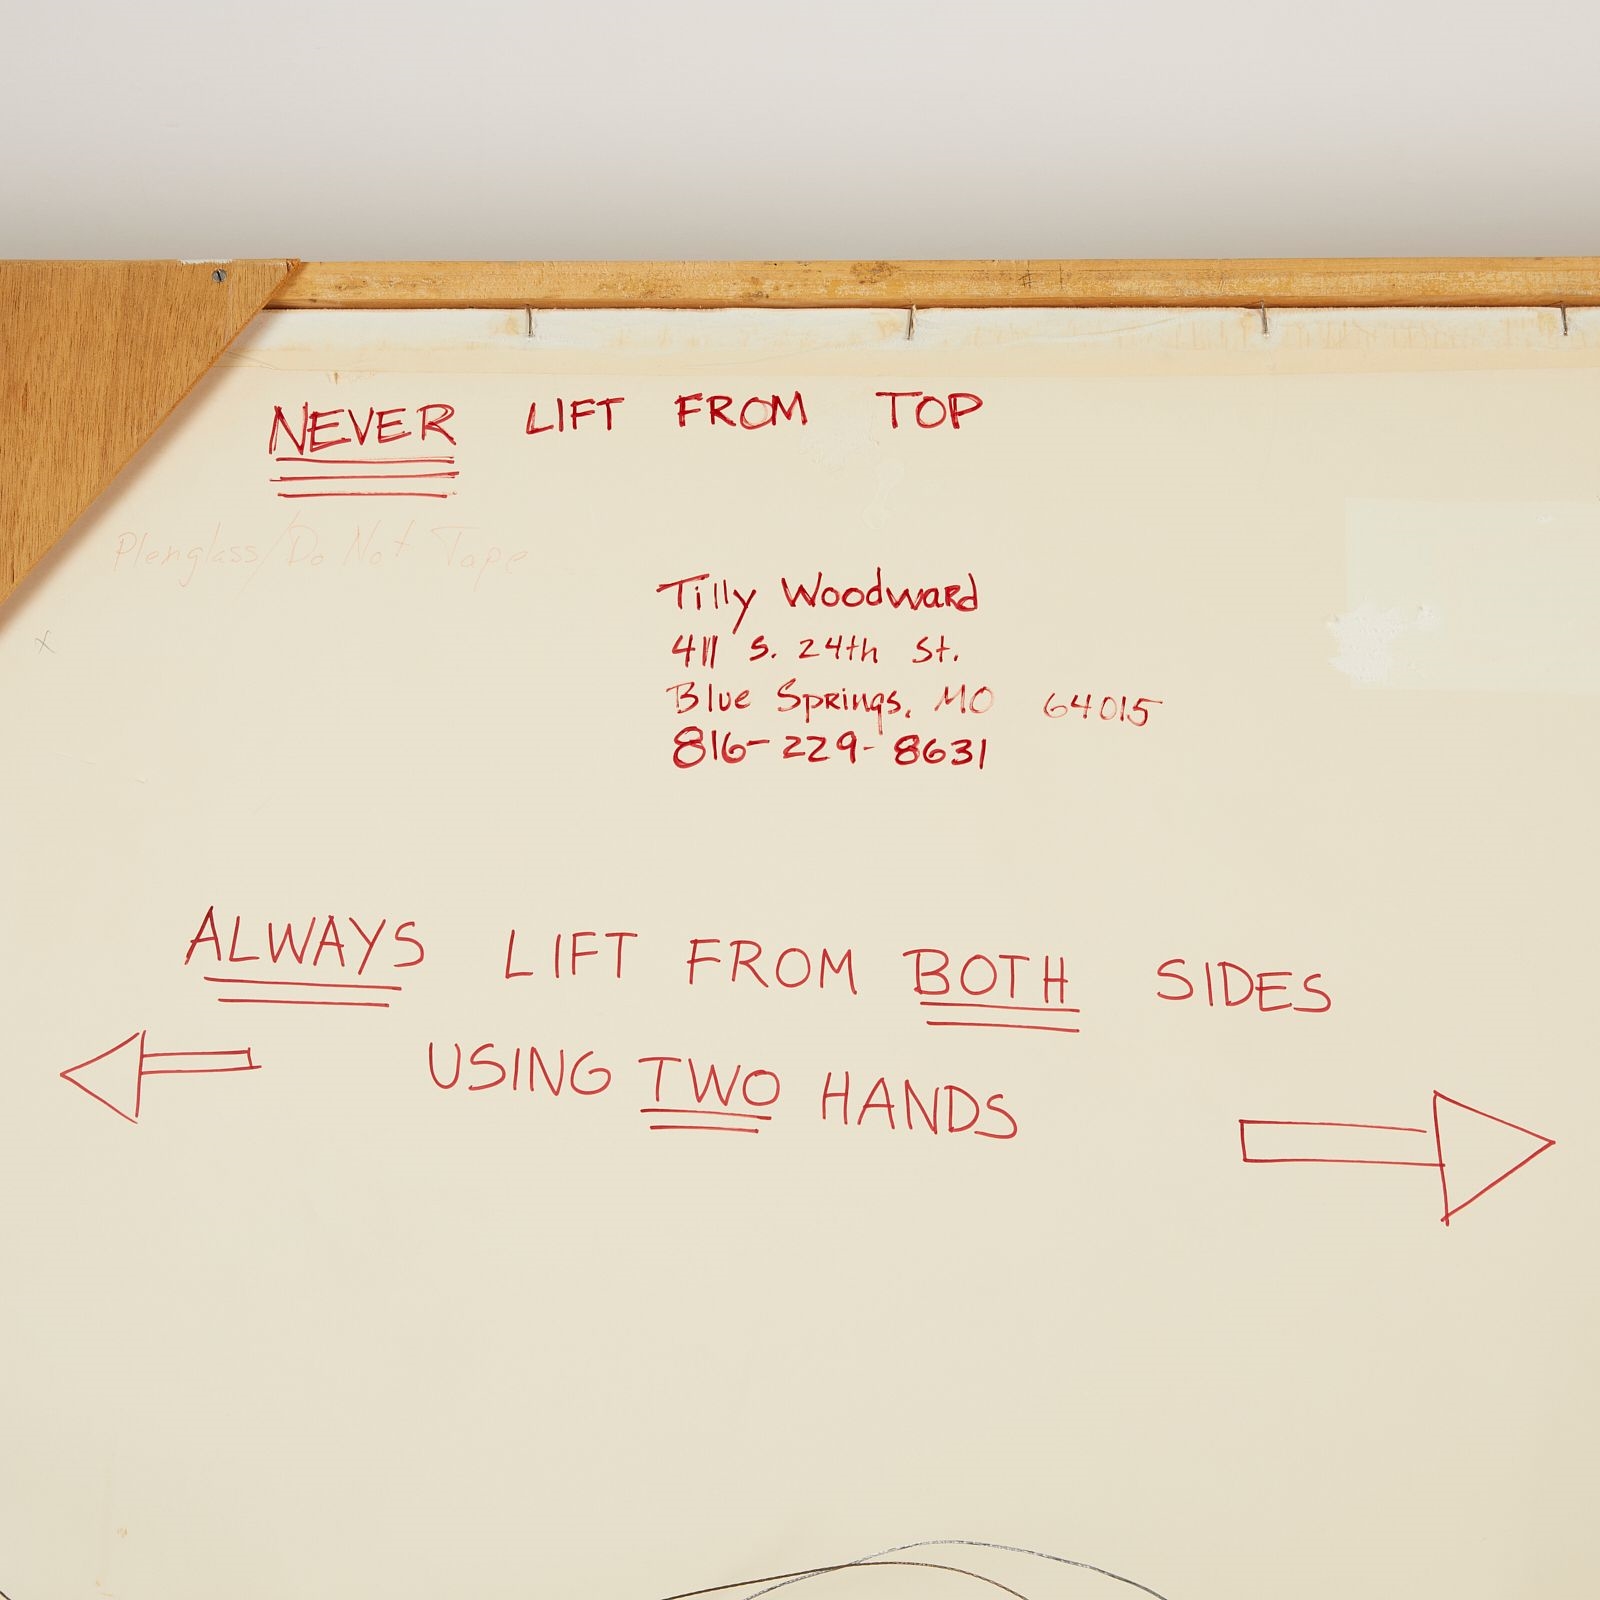 NEVER LIFT FROM TOP
Plexiglass/Do Not Tape
Tilly Woodward
411 S. 24th St.
Blue Springs, MO 64015
816-229-8631
ALWAYS LIFT FROM BOTH SIDES
USING TWO HANDS